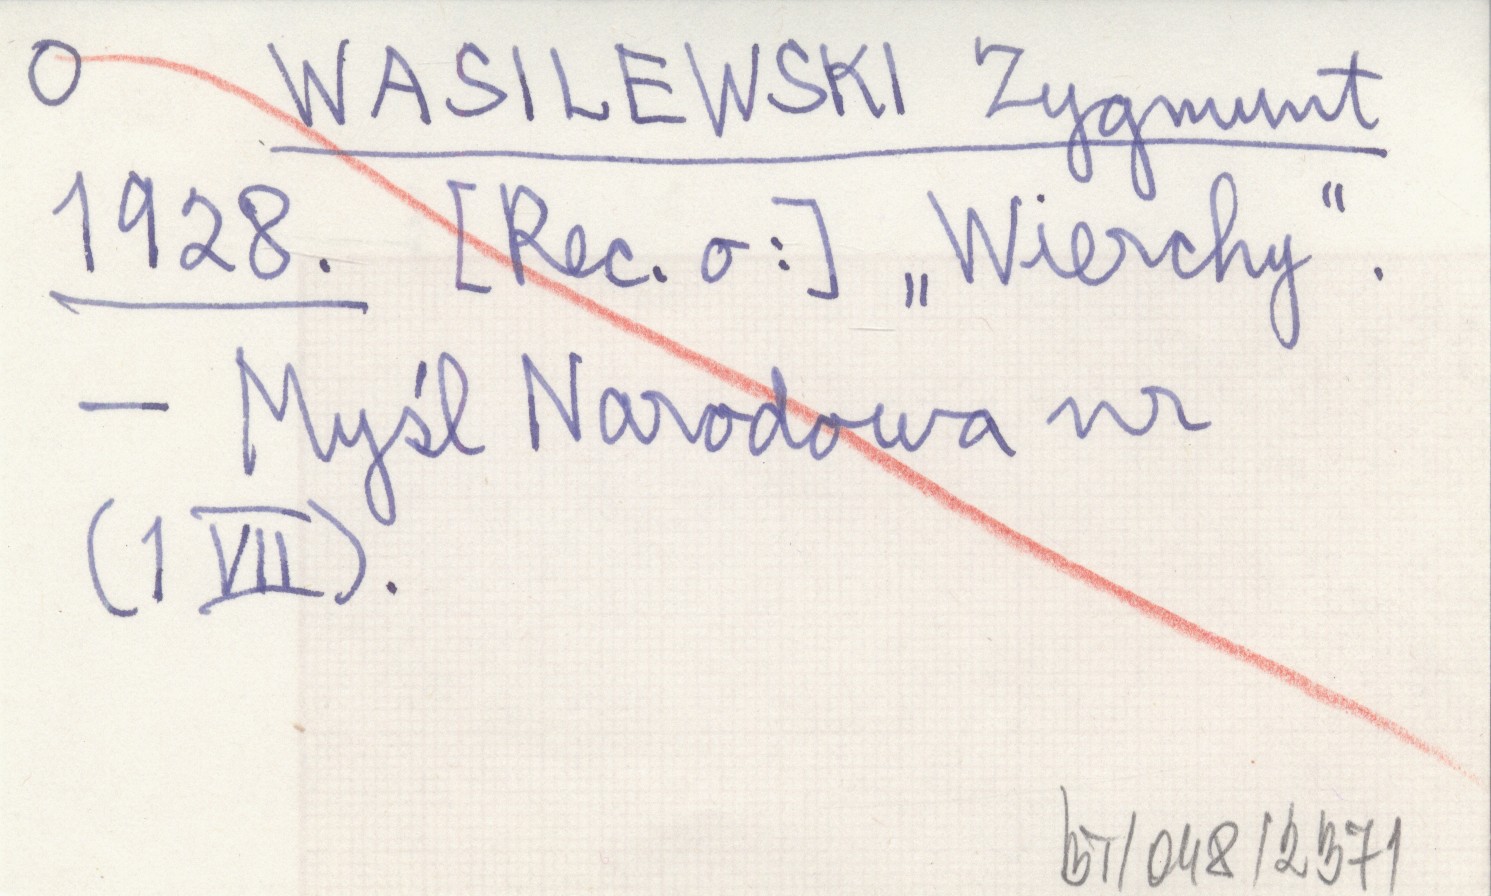 O WASILEWSKI Zygmunt
1928. [Rec. o:] „Wierchy“.
— Myśl Narodowa nr
(1 VII).
BT/048/2371